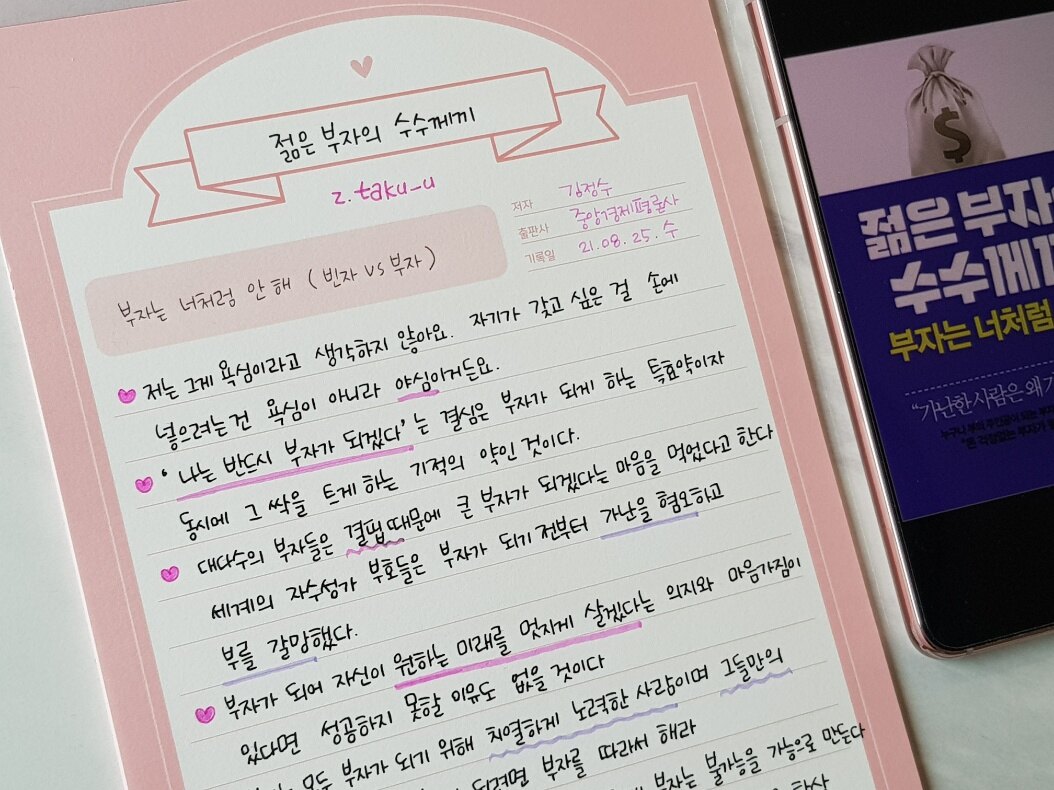 젊은 부자의 수수께끼
z.taku_u
저자 김정수
출판사 중앙경제평론사
기록일 21.08.25.수
부자는 너처럼 안해 (빈자 VS 부자)
저는 그게 욕심이라고 생각하지 않아요. 자기가 갖고 싶은 걸 손에
넣으려는건 욕심이 아니라 야심이거든요.
'나는 반드시 부자가 되겠다'는 결심은 부자가 되게 하는 특효약이자
동시에 그 싹을 트게하는 기적의 약인 것이다.
대다수의 부자들은 결핍때문에 큰 부자가 되겠다는 마음을 먹었다고 한다
세계의 자수성가 부호들은 부자가 되기 전부터 가난을 혐오하고
부를 갈망했다.
부자가 되어 자신이 원하는 미래를 멋지게 살겠다는 의지와 마음가짐이
있다면 성공하지 못할 이유도 없을 것이다
모두 부자가 되기 위해 치열하게 노력한 사람이며 그들만의
되려면 부자를 따라서 해라
부자는 불가능을 가능으로 만든다
$
젊은 부자
수수께
부자는 너처럼
"가난한 사람은 왜